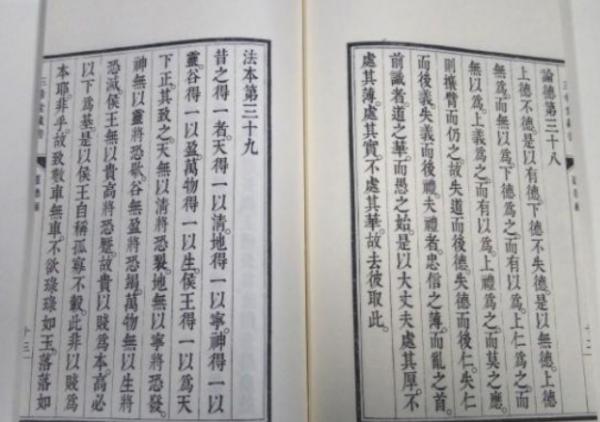 論德第三十八
上德不德。是以有德。下德不失德。是以無德。上德
無爲。而無以爲。下德爲之。而有以爲。上仁爲之。而
無以爲。上義爲之。而有以爲。上禮爲之。而莫之應。
則攘臂而仍之。故失道而後德。失德而後仁。失仁
而後義。失義而後禮。夫禮者。忠信之薄。而亂之首。
前識者。道之華。而愚之始。是以大丈夫。處其厚。不
處其薄。處其實。不處其華。故去彼取此。
十二
法本第三十九
昔之得一者。天得一以清。地得一以寧。神得一以
靈。谷得一以盈。萬物得一以生。侯王得一以爲天
下正。其致之。天無以清將恐裂。地無以寧將恐發。
神無以靈將恐歇。谷無盈將恐竭。萬物無以生將
恐滅。侯王無以貴高將恐蹷。故貴以賤爲本。高必
以下爲基。是以侯王自稱孤寡不轂。此非以賤爲
本耶。非乎。故致數車無車。不欲琭琭如玉。落落如
十三